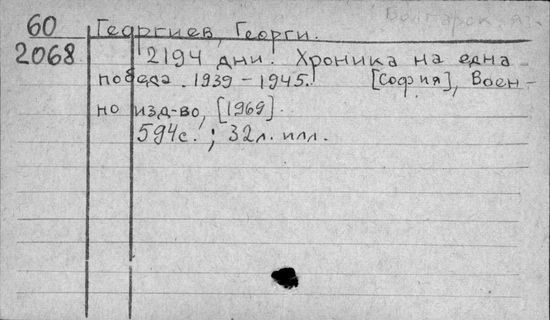 Болгарск. яз.
60 Георгиев, Георги.
2068 2194 дни. Хроника на една
победа. 1939-1945. [София], Воен-
но изд-во, [1969].
594с.; 32л. илл.